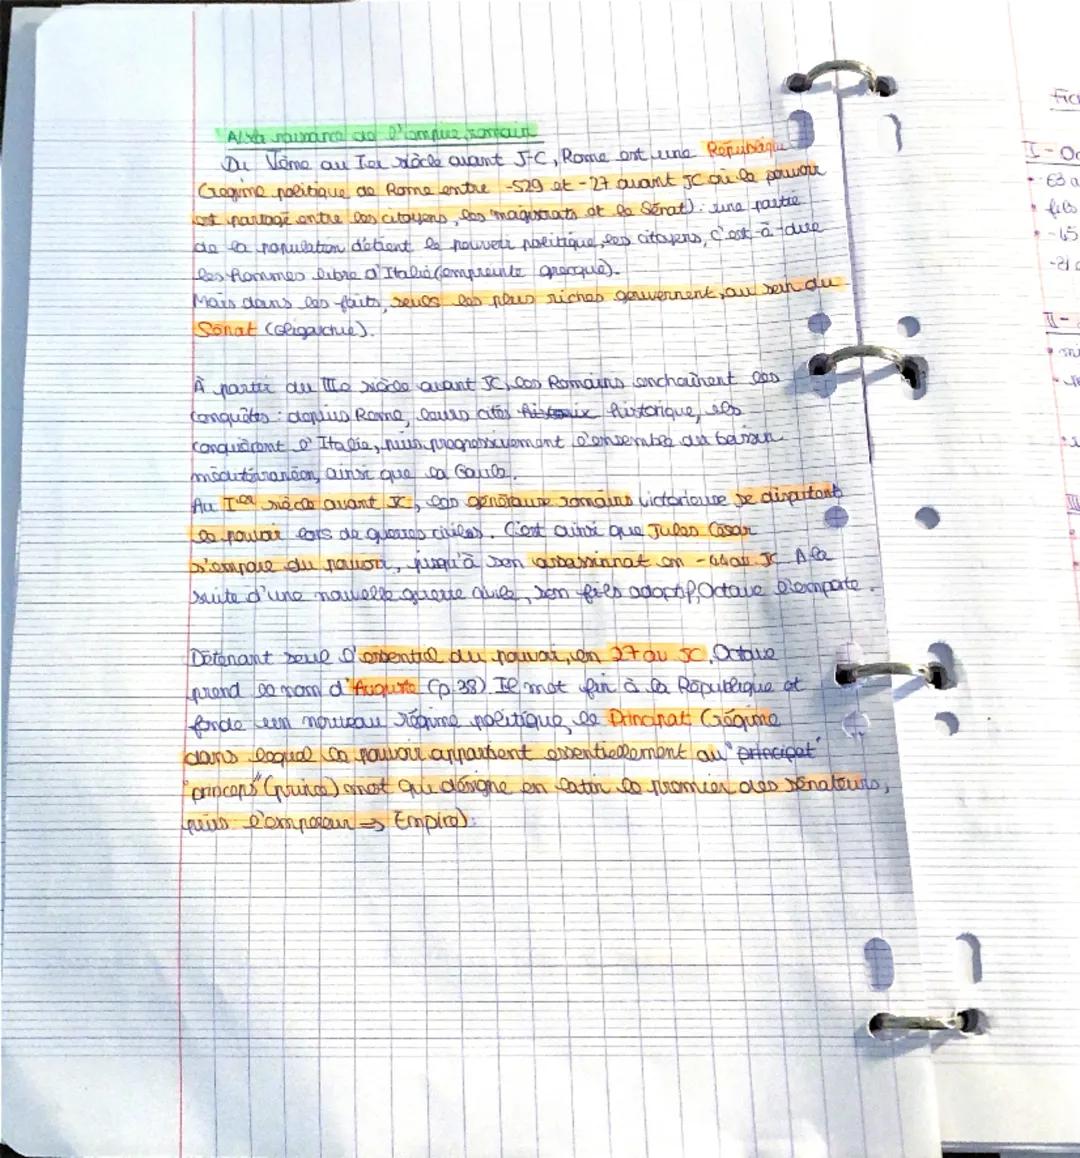 A/ La naissance de l'empire romain
Du Vème au Ier siècle avant J-C, Rome est une République
(régime politique de Rome entre -529 et -27 avant JC où le pouvoir
est partagé entre les citoyens, les magistrats et le Sénat) : une partie
de la population détient le pouvoir politique, les citoyens, c'est-à-dire
les hommes libre d'Italie (empreinte grecque).
Mais dans les faits, seuls les plus riches gouvernent, au sein du
Sénat (oligarchie).
À partir du IIIe siècle avant JC, les Romains enchaînent les
conquêtes : depuis Rome, leurs cités historique, ils
conquièrent l'Italie, puis progressivement l'ensemble du bassin
méditerranéen, ainsi que la Gaule.
Au Ier siècle avant JC, les généraux romains victorieuse se disputent
le pouvoir lors de guerres civiles. C'est ainsi que Jules César
s'empare du pouvoir, jusqu'à son assassinat en -44 av JC. A la
suite d'une nouvelle guerre civile, son fils adoptif, Octave l'emporte.
Détenant seul l'essentiel du pouvoir, en 27 av JC, Octave
prend le nom d'Auguste (p.38). Il met fin à la République et
fonde un nouveau régime politique, le Principat (régime
dans lequel le pouvoir appartient essentiellement au "principat"
"princeps" (prince) mot qui désigne en latin le premier des sénateurs,
puis l'empereur => Empire).
Fic
I - Oc
• 63 a
• fils
• -45
II -
• mi
III